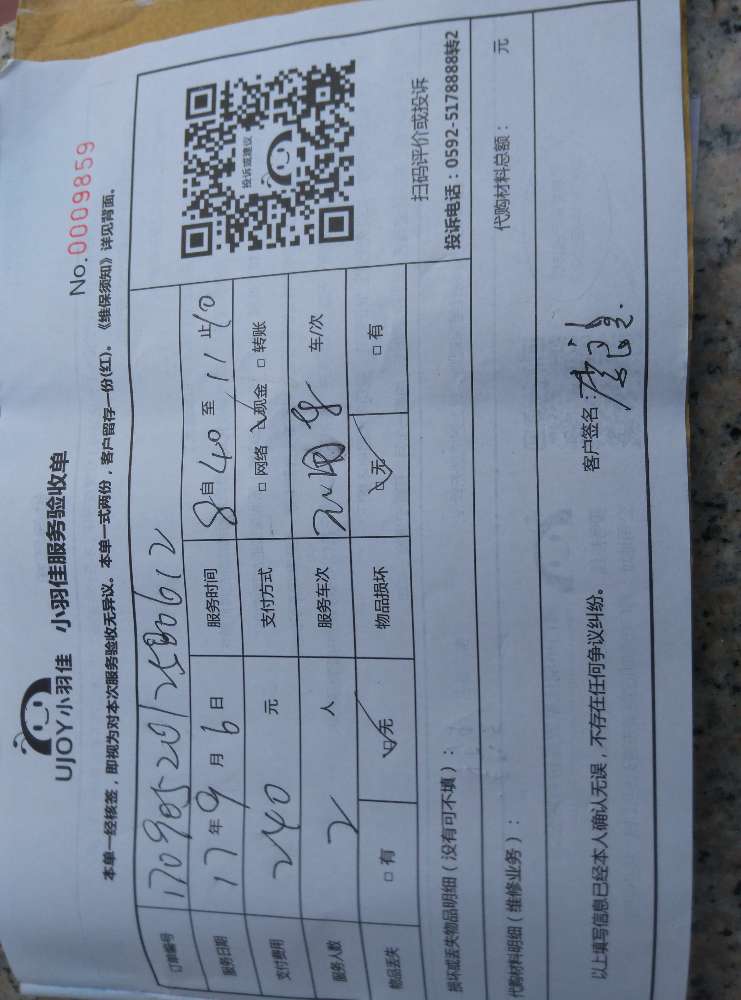 UJOY小羽佳 小羽佳服务验收单
No.0009859
本单一经核签，即视为对本次服务验收无异议。本单一式两份，客户留存一份(红)。《维保须知》详见背面。
订单编号 170905201258b0612
服务日期 17年9月6日 服务时间 8自40至11止40
支付费用 240元 支付方式 □网络 ☑现金 □转账
服务人数 2人 服务车次 车/次
物品丢失 □有 ☑无 物品损坏 ☑无 □有
投诉或建议
扫码评价或投诉
投诉电话：0592-5178888转2
损坏或丢失物品明细（没有可不填）：
代购材料明细（维修业务）： 代购材料总额： 元
以上填写信息已经本人确认无误，不存在任何争议纠纷。 客户签名：